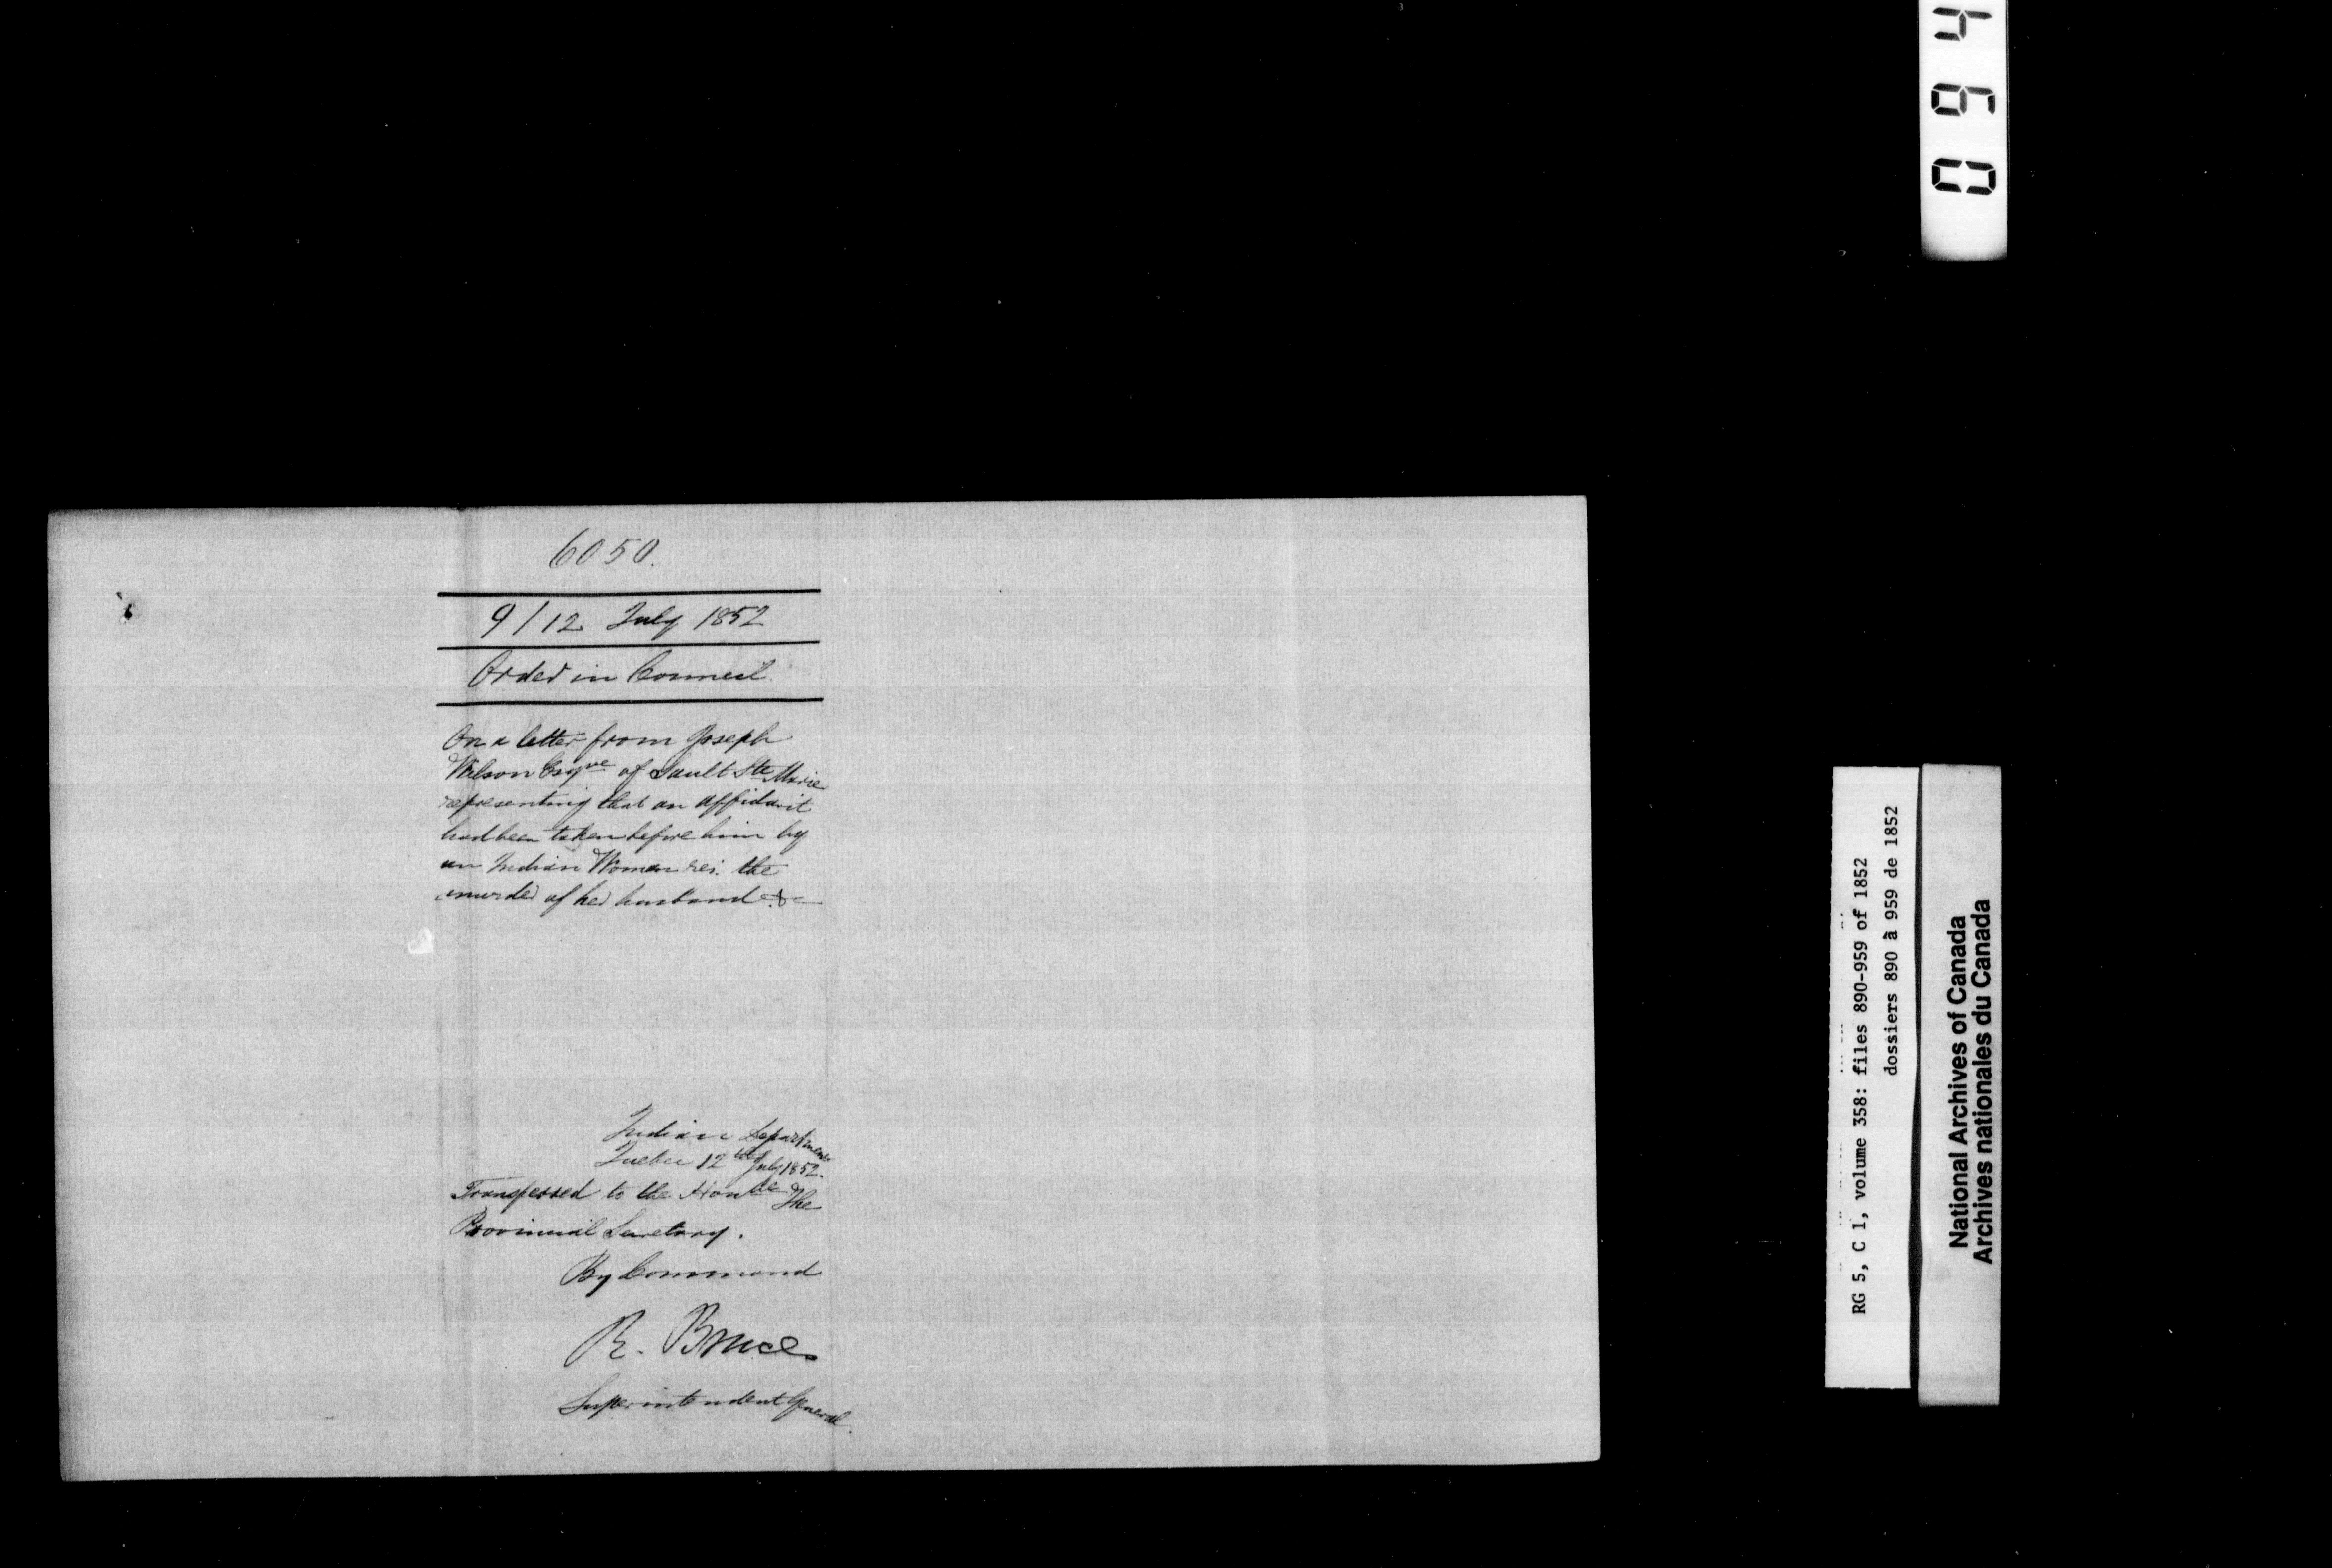 6050.
9/12 July 1852
Order in Council.
On a letter from Joseph
Wilson Esqre of Sault Ste Marie
representing that an affidavit
had been taken before him by
an Indian Woman res: the
murder of her husband &c
Indian Department
Quebec 12th July 1852.
Transferred to the Honble The
Provincial Secretary.
By Command
R. Bruce
Superintendent General.
094
RG 5, C 1, volume 358: files 890-959 of 1852
dossiers 890 à 959 de 1852
National Archives of Canada
Archives nationales du Canada